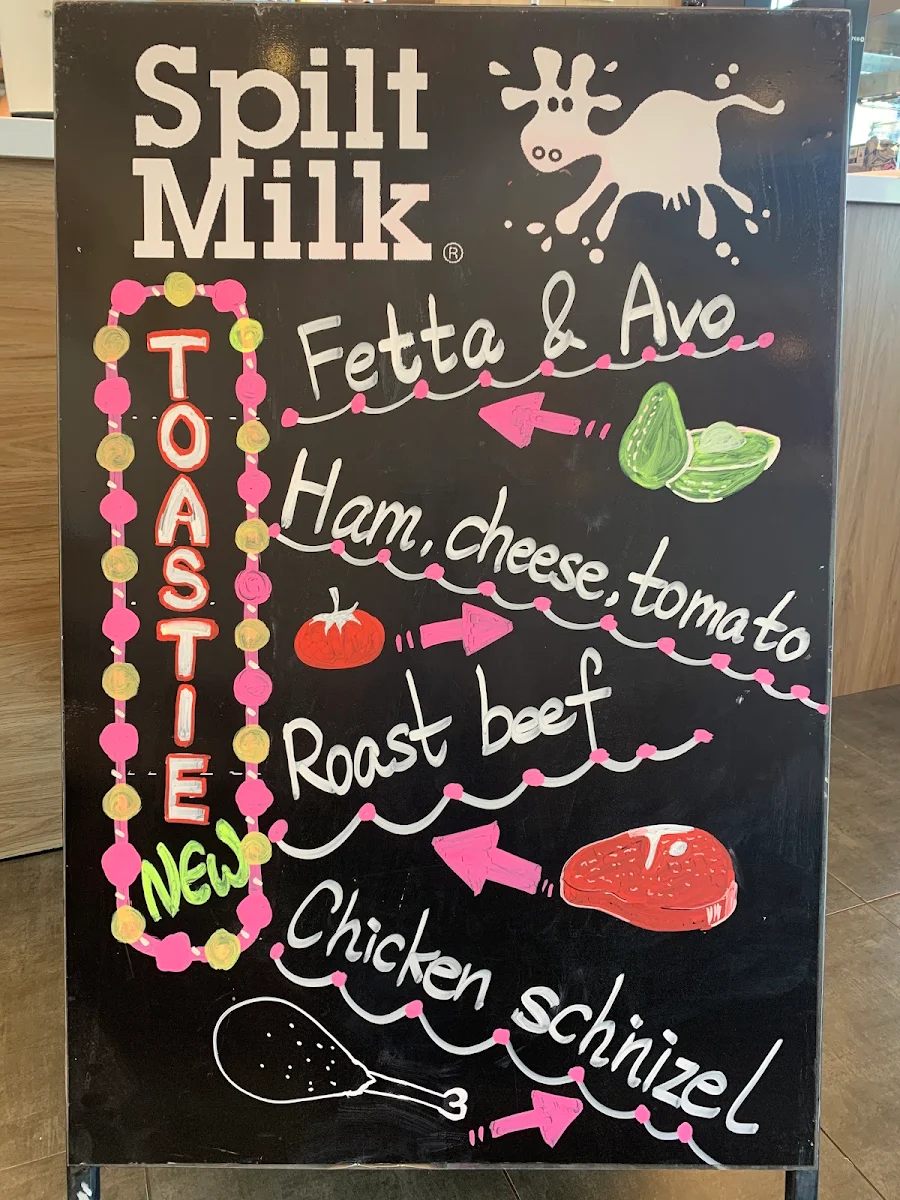 Spilt
Milk®
TOASTIE
NEW
Fetta & Avo
Ham, cheese, tomato
Roast beef
Chicken schnizel